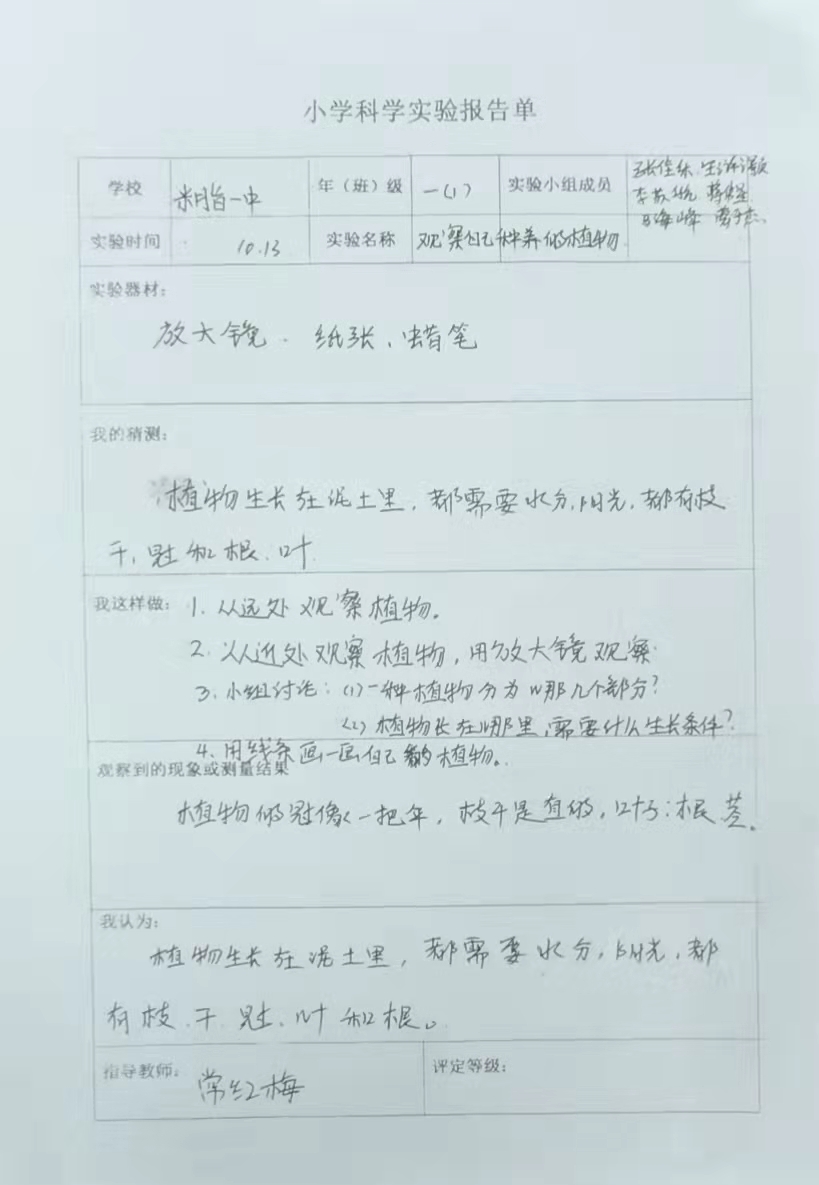 小学科学实验报告单
学校 米脂一中 年（班）级 一（1） 实验小组成员
李
海峰
实验时间 10.13 实验名称 观察自己种养的植物
实验器材：
放大镜、纸张、蜡笔
我的猜测：
植物生长在泥土里，都需要水分，阳光，都有枝
干，冠和根、叶
我这样做：1. 从远处观察植物。
2. 从近处观察植物，用放大镜观察
3. 小组讨论：（1）一种植物分为哪几个部分？
（2）植物长在哪里，需要什么生长条件？
4. 用线条画一画自己的植物。
观察到的现象或测量结果
植物的冠像一把伞，枝干是直的，叶子：根茎。
我认为：
植物生长在泥土里，都需要水分，阳光，都
有枝、干、冠、叶和根。
指导教师：常红梅 评定等级：